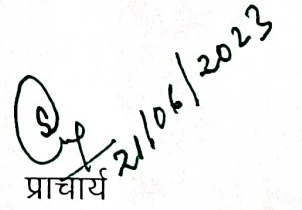 21/06/2023
प्राचार्य